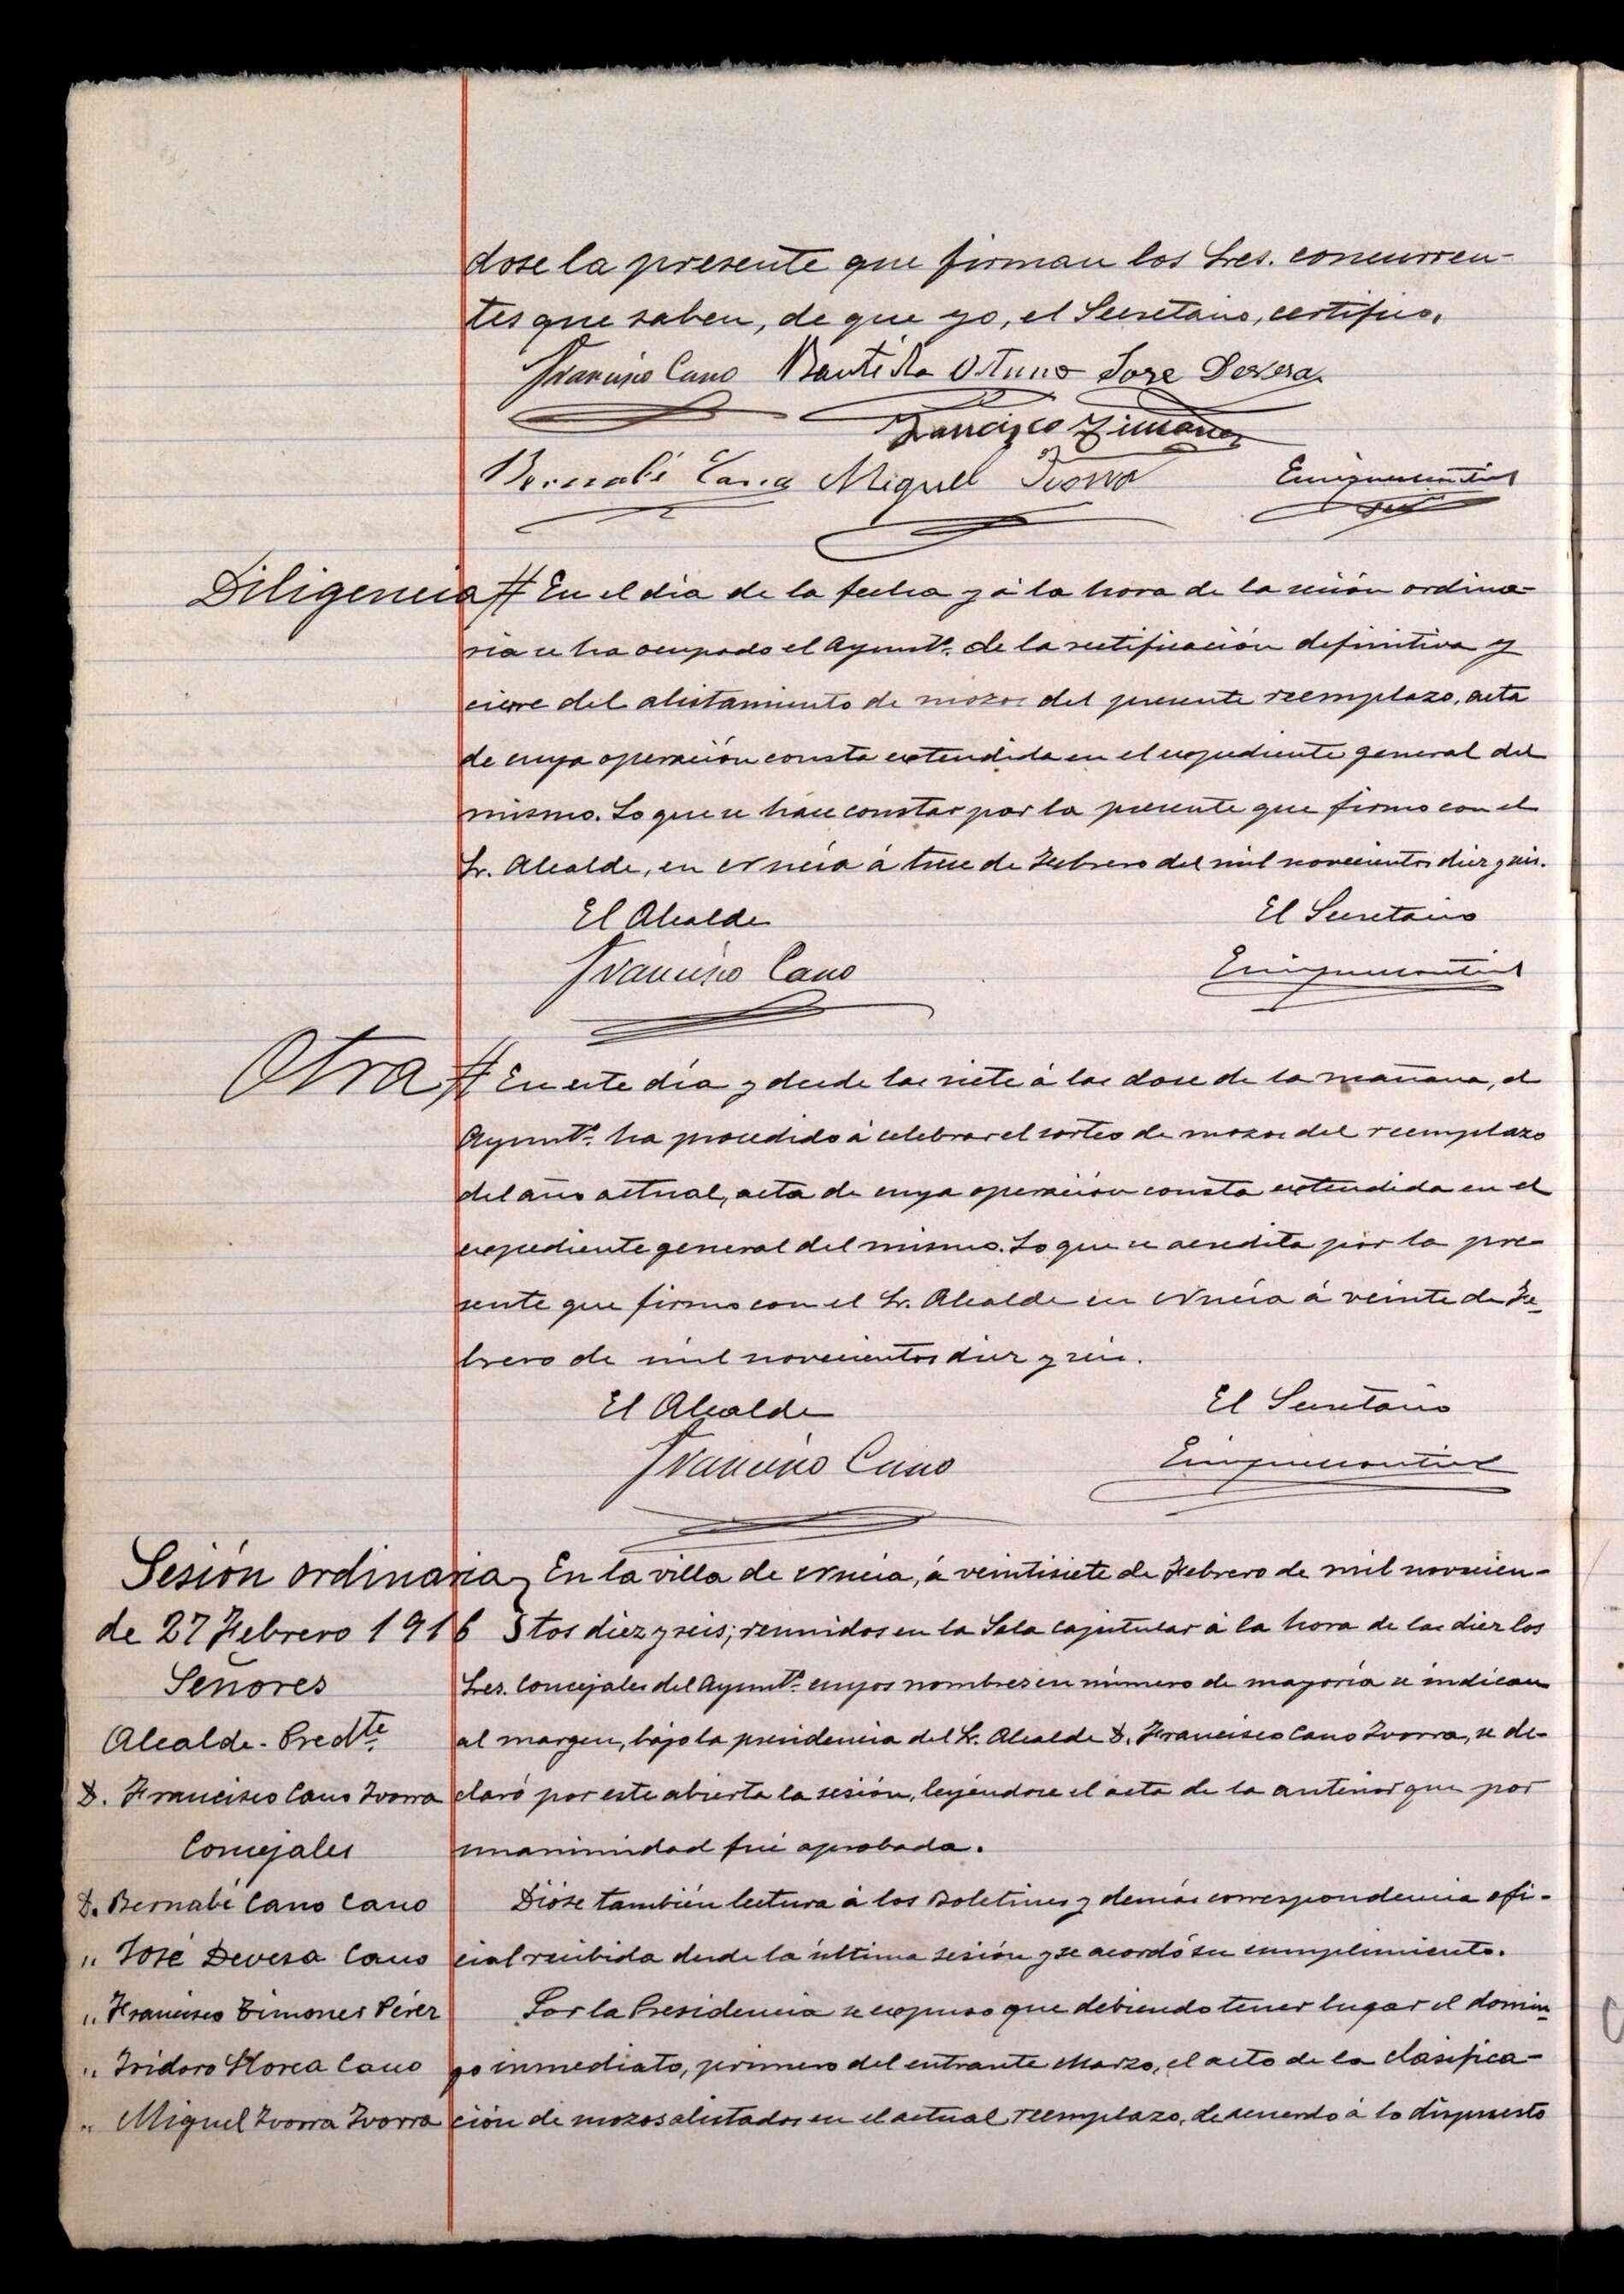 dose la presente que firman los Sres. concurren-
tes que saben, de que yo, el Secretario, certifico.
Francisco Cano Bautista Ortuno Jose Devesa
Francisco Zimones
Bernabé Cano Miguel Ivorra
Diligencia # En el día de la fecha y á la hora de la sesión ordina-
ria se ha ocupado el Ayuntº. de la rectificación definitiva y
cierre del alistamiento de mozos del presente reemplazo, acta
de cuya operación consta extendida en el expediente general del
mismo. Lo que se hace constar por la presente que firmo con el
Sr. Alcalde, en Nucía á trece de Febrero del mil novecientos diez y seis.
El Alcalde El Secretario
Francisco Cano
Otra # En este día y desde las siete á las doce de la mañana, el
Ayuntº. ha procedido á celebrar el sorteo de mozos del reemplazo
del año actual, acta de cuya operación consta extendida en el
expediente general del mismo. Lo que se acredita por la pre-
sente que firmo con el Sr. Alcalde en Nucía á veinte de Fe-
brero de mil novecientos diez y seis.
El Alcalde El Secretario
Francisco Cano
Sesión ordinaria
de 27 Febrero 1916
Señores
Alcalde-Predte.
D. Francisco Cano Ivorra
Concejales
D. Bernabé Cano Cano
" José Devesa Cano
" Francisco Zimones Pérez
" Isidoro Llorca Cano
" Miguel Ivorra Ivorra
En la villa de Nucía, á veintisiete de Febrero de mil novecien-
tos diez y seis; reunidos en la Sala capitular á la hora de las diez los
Sres. Concejales del Ayuntº. cuyos nombres en número de mayoría se indican
al margen, bajo la presidencia del Sr. Alcalde D. Francisco Cano Ivorra, se de-
claró por este abierta la sesión, leyéndose el acta de la anterior que por
unanimidad fué aprobada.
Dióse también lectura á los Boletines y demás correspondencia ofi-
cial recibida desde la última sesión y se acordó su cumplimiento.
Por la Presidencia se expuso que debiendo tener lugar el domin-
go inmediato, primero del entrante Marzo, el acto de la clasifica-
ción de mozos alistados en el actual reemplazo, de acuerdo á lo dispuesto